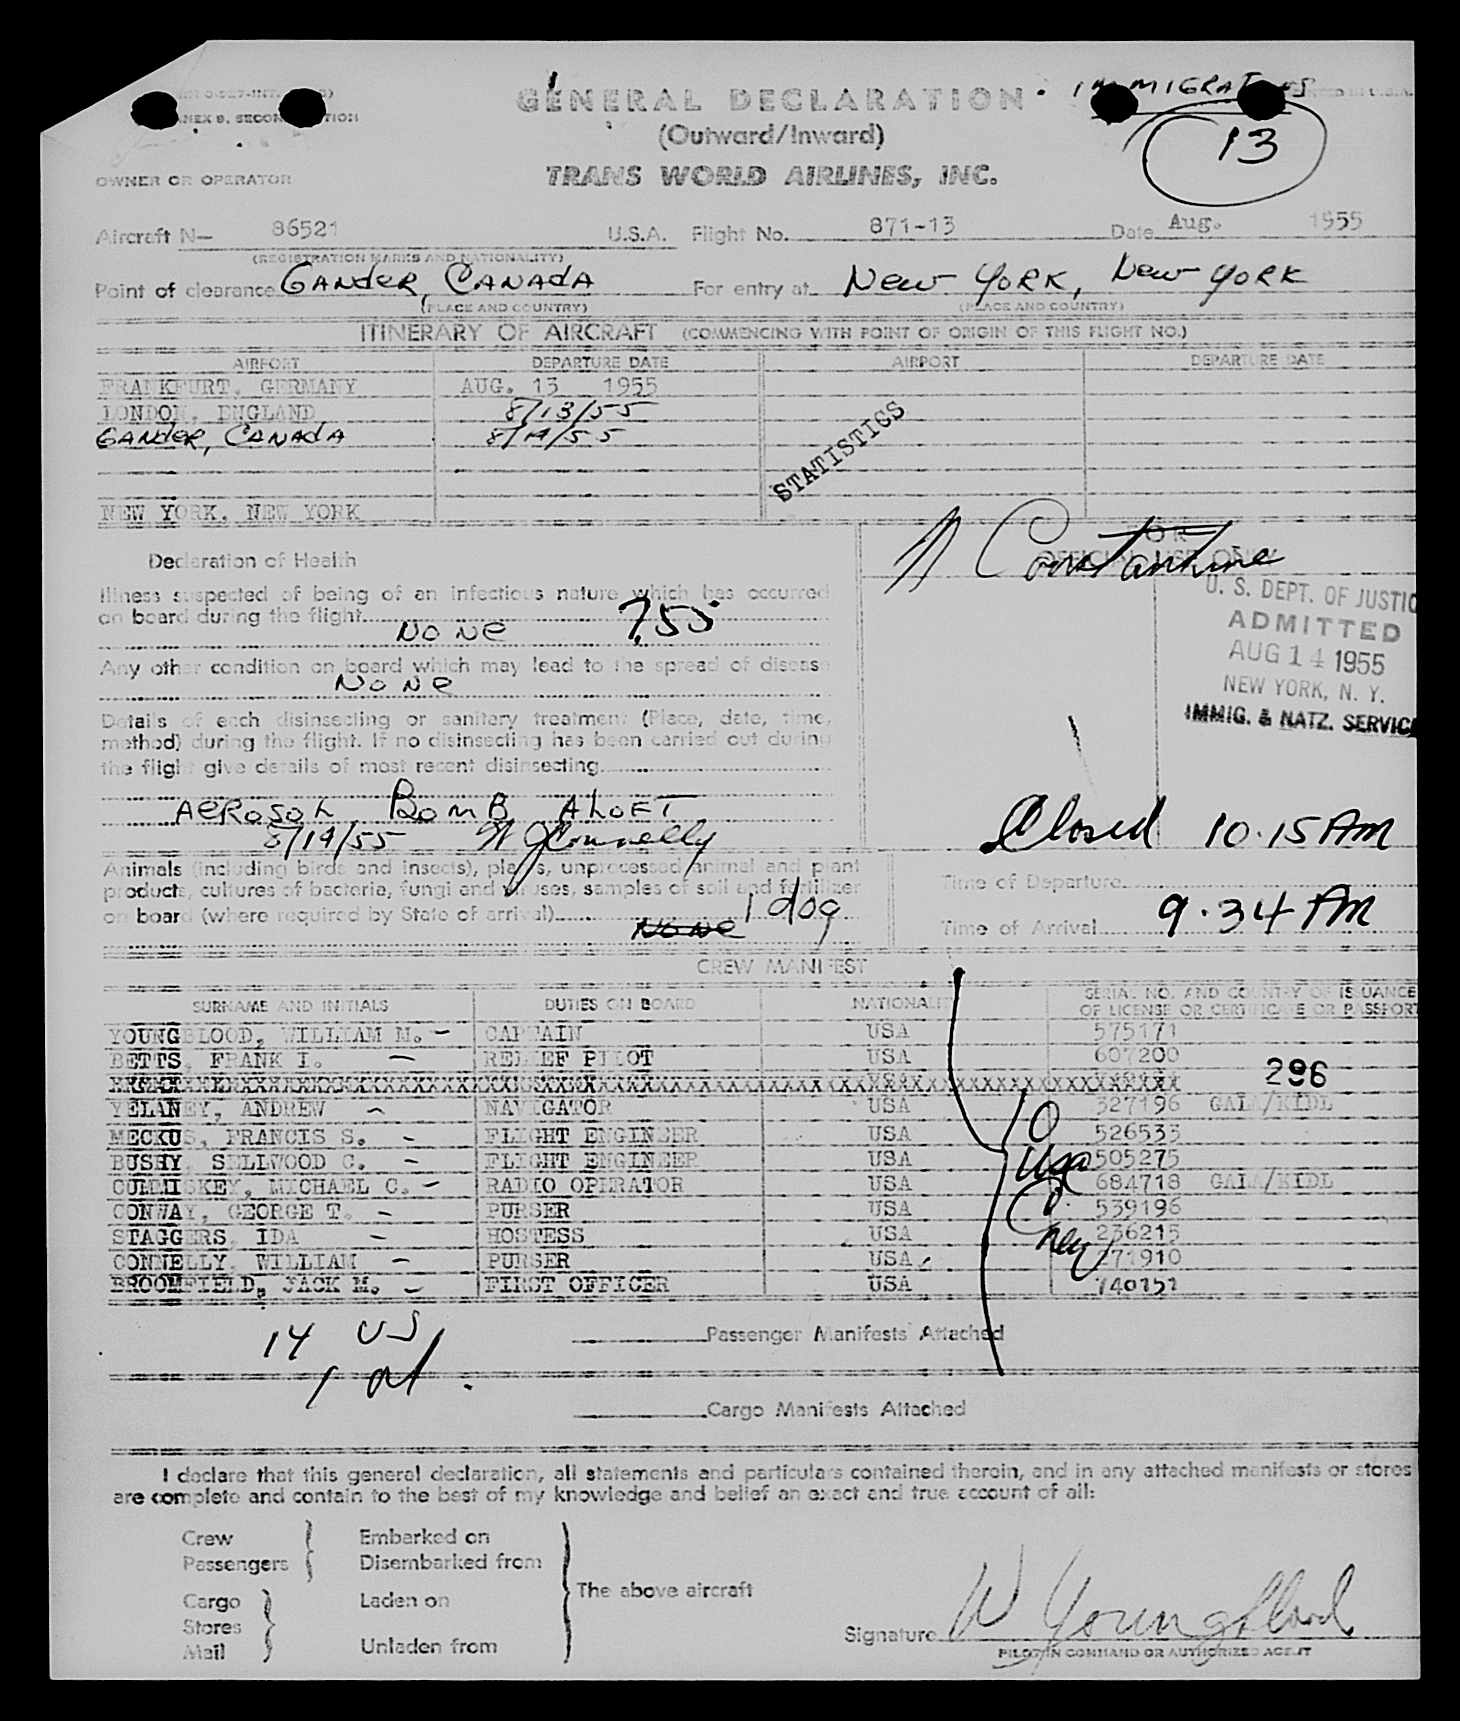 GENERAL DECLARATION
IMMIGRATIONS
(Outward/Inward)
13
OWNER OR OPERATOR
TRANS WORLD AIRLINES, INC.
Aircraft N— 86521 U.S.A. Flight No. 871-13 Date Aug. 1955
(REGISTRATION MARKS AND NATIONALITY)
Point of clearance GANDER, CANADA For entry at New YORK, New YORK
(PLACE AND COUNTRY) (PLACE AND COUNTRY)
ITINERARY OF AIRCRAFT (COMMENCING WITH POINT OF ORIGIN OF THIS FLIGHT NO.)
AIRPORT DEPARTURE DATE AIRPORT DEPARTURE DATE
FRANKFURT, GERMANY AUG. 13 1955
LONDON, ENGLAND 8/13/55
GANDER, CANADA 8/14/55
STATISTICS
NEW YORK, NEW YORK
N Constantine
FOR
OFFICIAL USE ONLY
Declaration of Health
Illness suspected of being of an infectious nature which has occurred
on board during the flight
NONE 755
Any other condition on board which may lead to the spread of disease
NONE
U. S. DEPT. OF JUSTIC
ADMITTED
AUG 14 1955
NEW YORK, N. Y.
IMMIG. & NATZ. SERVICE
Details of each disinsecting or sanitary treatment (Place, date, time,
method) during the flight. If no disinsecting has been carried out during
the flight give details of most recent disinsecting
AEROSOL BOMB ALOFT
8/14/55 W J Connelly
Closed 10.15 AM
Animals (including birds and insects), plants, unprocessed animal and plant
products, cultures of bacteria, fungi and viruses, samples of soil and fertilizer
on board (where required by State of arrival) NONE 1 dog
Time of Departure
Time of Arrival 9.34 AM
CREW MANIFEST
SURNAME AND INITIALS DUTIES ON BOARD NATIONALITY SERIAL NO. AND COUNTRY OF ISSUANCE
OF LICENSE OR CERTIFICATE OR PASSPORT
YOUNGBLOOD, WILLIAM M. – CAPTAIN USA 575171
BETTS, FRANK I. – RELIEF PILOT USA 607200
296
YELANEY, ANDREW – NAVIGATOR USA 327196 GAL/KIDL
MECKUS, FRANCIS S. – FLIGHT ENGINEER USA 526533
BUSHY, SELLWOOD C. – FLIGHT ENGINEER USA 505275
CUMMISKEY, MICHAEL C. – RADIO OPERATOR USA 684718 GAL/KIDL
CONWAY, GEORGE T. – PURSER USA 539196
STAGGERS, IDA – HOSTESS USA 236215
CONNELLY, WILLIAM – PURSER USA 71910
BROOMFIELD, JACK M. – FIRST OFFICER USA 740151
14 US
Passenger Manifests Attached
Cargo Manifests Attached
I declare that this general declaration, all statements and particulars contained therein, and in any attached manifests or stores
are complete and contain to the best of my knowledge and belief an exact and true account of all:
Crew Embarked on
Passengers Disembarked from
The above aircraft
Cargo Laden on
Stores
Mail Unladen from
Signature W Youngblood
PILOT IN COMMAND OR AUTHORIZED AGENT